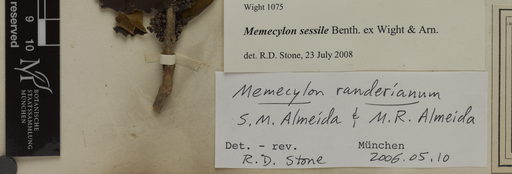 Wight 1075
Memecylon sessile Benth. ex Wight & Arn.
det. R.D. Stone, 23 July 2008
Memecylon randerianum
S.M. Almeida & M.R. Almeida
Det. - rev. München
R.D. Stone 2006.05.10
reserved
9 10
BOTANISCHE
STAATSSAMMLUNG
MÜNCHEN